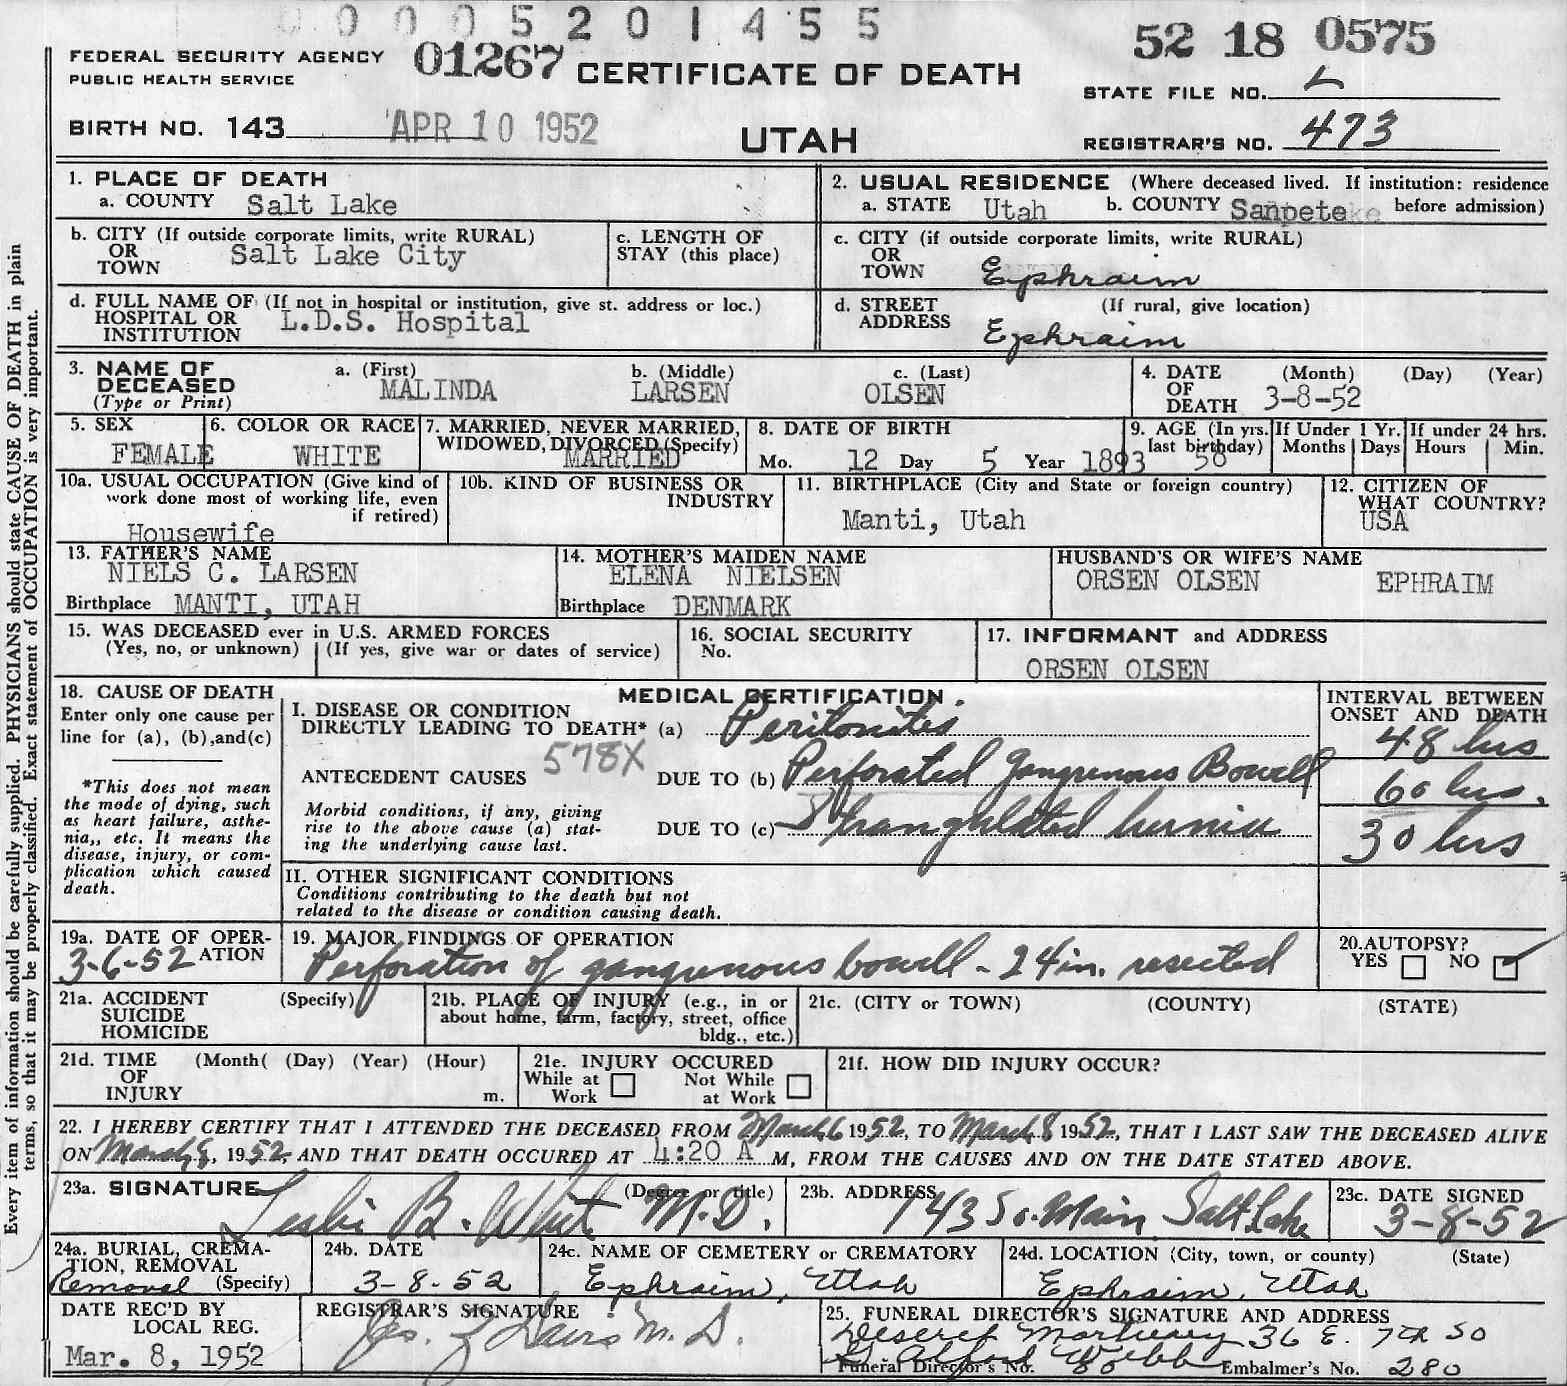 0 0 0 5 2 0 1 4 5 5
FEDERAL SECURITY AGENCY
PUBLIC HEALTH SERVICE
01267
CERTIFICATE OF DEATH
52 18 0575
STATE FILE NO. L
BIRTH NO. 143
APR 10 1952
UTAH
REGISTRAR'S NO. 473
Every item of information should be carefully supplied. PHYSICIANS should state CAUSE OF DEATH in plain
terms, so that it may be properly classified. Exact statement of OCCUPATION is very important.
1. PLACE OF DEATH
a. COUNTY Salt Lake
2. USUAL RESIDENCE (Where deceased lived. If institution: residence
a. STATE Utah b. COUNTY Sanpete before admission)
b. CITY (If outside corporate limits, write RURAL)
OR
TOWN Salt Lake City
c. LENGTH OF
STAY (this place)
c. CITY (if outside corporate limits, write RURAL)
OR
TOWN Ephraim
d. FULL NAME OF (If not in hospital or institution, give st. address or loc.)
HOSPITAL OR
INSTITUTION L.D.S. Hospital
d. STREET (If rural, give location)
ADDRESS Ephraim
3. NAME OF
DECEASED
(Type or Print)
a. (First)
MALINDA
b. (Middle)
LARSEN
c. (Last)
OLSEN
4. DATE (Month) (Day) (Year)
OF
DEATH 3-8-52
5. SEX
FEMALE
6. COLOR OR RACE
WHITE
7. MARRIED, NEVER MARRIED,
WIDOWED, DIVORCED (Specify)
MARRIED
8. DATE OF BIRTH
Mo. 12 Day 5 Year 1893
9. AGE (In yrs.
last birthday) 58
If Under 1 Yr.
Months Days
If under 24 hrs.
Hours Min.
10a. USUAL OCCUPATION (Give kind of
work done most of working life, even
if retired)
Housewife
10b. KIND OF BUSINESS OR
INDUSTRY
11. BIRTHPLACE (City and State or foreign country)
Manti, Utah
12. CITIZEN OF
WHAT COUNTRY?
USA
13. FATHER'S NAME
NIELS C. LARSEN
Birthplace MANTI, UTAH
14. MOTHER'S MAIDEN NAME
ELENA NIELSEN
Birthplace DENMARK
HUSBAND'S OR WIFE'S NAME
ORSEN OLSEN EPHRAIM
15. WAS DECEASED ever in U.S. ARMED FORCES
(Yes, no, or unknown) (If yes, give war or dates of service)
16. SOCIAL SECURITY
No.
17. INFORMANT and ADDRESS
ORSEN OLSEN
18. CAUSE OF DEATH
Enter only one cause per
line for (a), (b),and(c)
*This does not mean
the mode of dying, such
as heart failure, asthe-
nia,, etc. It means the
disease, injury, or com-
plication which caused
death.
MEDICAL CERTIFICATION
I. DISEASE OR CONDITION
DIRECTLY LEADING TO DEATH* (a) Peritonitis
578X
ANTECEDENT CAUSES DUE TO (b) Perforated gangrenous Bowell
Morbid conditions, if any, giving
rise to the above cause (a) stat-
ing the underlying cause last.
DUE TO (c) Strangulated hernia
INTERVAL BETWEEN
ONSET AND DEATH
48 hrs
60 hrs.
30 hrs
II. OTHER SIGNIFICANT CONDITIONS
Conditions contributing to the death but not
related to the disease or condition causing death.
19a. DATE OF OPER-
ATION
3-6-52
19. MAJOR FINDINGS OF OPERATION
Perforation of gangrenous bowell - 24 in. resected
20. AUTOPSY?
YES NO
21a. ACCIDENT (Specify)
SUICIDE
HOMICIDE
21b. PLACE OF INJURY (e.g., in or
about home, farm, factory, street, office
bldg., etc.)
21c. (CITY or TOWN) (COUNTY) (STATE)
21d. TIME (Month( (Day) (Year) (Hour)
OF
INJURY m.
21e. INJURY OCCURED
While at Work Not While at Work
21f. HOW DID INJURY OCCUR?
22. I HEREBY CERTIFY THAT I ATTENDED THE DECEASED FROM March 6 1952, TO March 8 1952, THAT I LAST SAW THE DECEASED ALIVE
ON March 8, 1952, AND THAT DEATH OCCURED AT 4:20 A M, FROM THE CAUSES AND ON THE DATE STATED ABOVE.
23a. SIGNATURE (Degree or title)
Leslie B. White M.D.
23b. ADDRESS
143 So. Main Salt Lake
23c. DATE SIGNED
3-8-52
24a. BURIAL, CREMA-
TION, REMOVAL
Removal (Specify)
24b. DATE
3-8-52
24c. NAME OF CEMETERY or CREMATORY
Ephraim, Utah
24d. LOCATION (City, town, or county) (State)
Ephraim, Utah
DATE REC'D BY
LOCAL REG.
Mar. 8, 1952
REGISTRAR'S SIGNATURE
Davis M.D.
25. FUNERAL DIRECTOR'S SIGNATURE AND ADDRESS
Deseret Mortuary 36 E. 7th So
Alford Webb
Funeral Director's No. Embalmer's No. 280